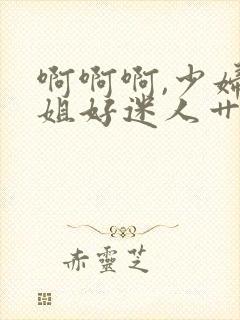 啊啊啊,少婦
姐好迷人艹
赤靈芝